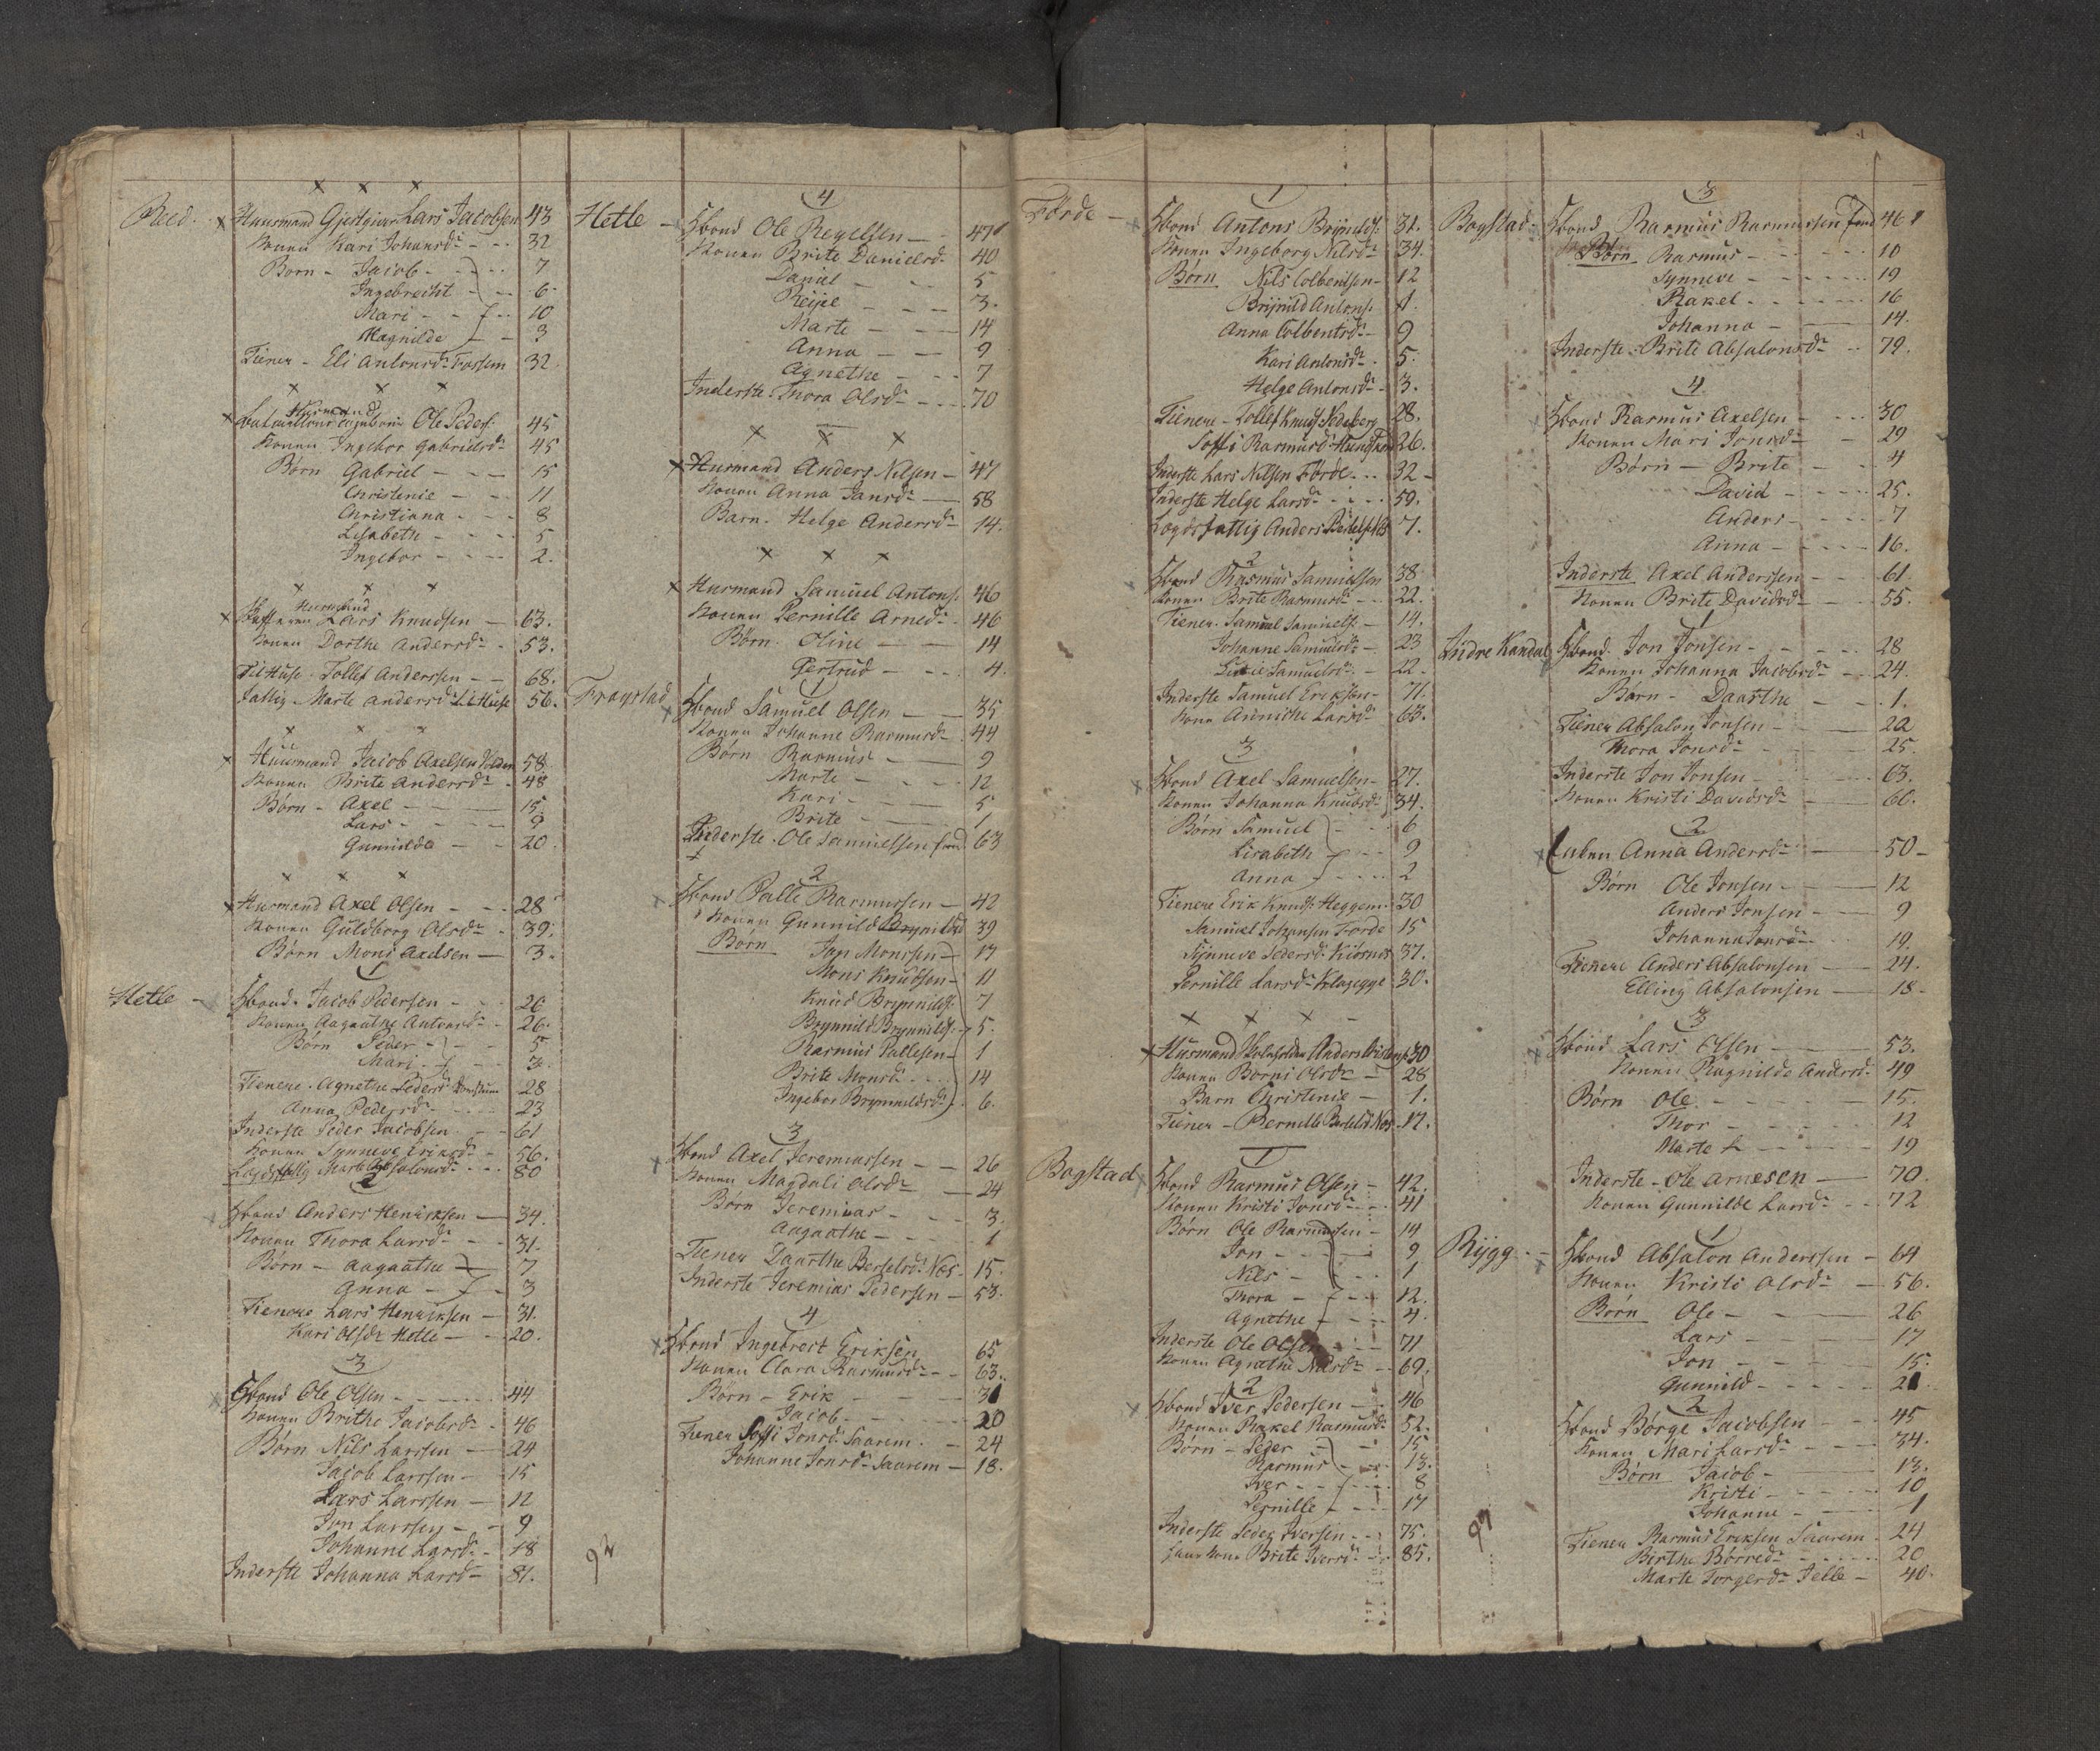 x x x
Reed. x Huusmand Gjestgiver Lars Jacobsen 43
Konen Kari Johansdr 32
Børn - Jacob 7
Ingebrecht 6
Mari 10
Magnilde 3
Tiener - Eli Antonsdr Fossem 32
x x x
Husmand
x Ole Peders: 45
Konen Ingebor Gabrielsdr 45
Børn Gabriel 15
Christenie 11
Christiana 8
Lisabeth 5
Ingebor 2.
x x x
Husmand
x Lars Knudsen 63.
Konen Dorthe Andersdr 53.
Til Huse. Tollef Anderssen 68.
Fattig - Marte Andersdr til Huse 56.
x x x
x Huusmand Jacob Axelsen 58
Konen Brite Andersdr 48
Børn - Axel 15
Lars 9
Gunnilda 20
x x x
x Husmand Axel Olsen 28
Konen Guldborg Olsdr 39.
Børn Mons Axelsen 3.
1
Hetle - Hbond. Jacob Pedersen 26
Konen Aagaathe Antonsdr 26.
Børn Peder 5
Mari 3.
Tienere. Agnethe Pedersdr 28
Anna Pedersdr 23
Inderste Peder Jacobsen 61
Konen Synneve Eriksdr 56.
Lægdsfattig Marte Absalonsdr 80
2
x Hbond Anders Henriksen 34.
Konen Thora Larsdr 31.
Børn - Aagaathe 7
Anna 3
Tienere Lars Henriksen 31.
Kari Olsdr Hetle 20.
3
x Hbond Ole Olsen 44
Konen Brithe Jacobsdr 46
Børn Nils Larssen 24
Jacob Larssen 15
Lars Larssen 12
Jon Larssen 9
Johanne Larsdr 18
Inderste Johanna Larsdr 81.
4
Hetle - Hbond Ole Regelsen 47
Konen Brite Danielsdr 40
Daniel 5
Reijel 3.
Marte 14
Anna 9
Agnethe 7
Inderste Thora Olsdr 70
x x x
x Husmand Anders Nilsen 47
Konen Anna Jansdr 58
Barn. Helge Andersdr 14.
x x x
x Husmand Samuel Antons: 46
Konen Pernille Arnedr 46
Børn. Oline 14
Gertrud 4.
1
Frøystad x Hbond Samuel Olsen 35
Konen Johanne Rasmusdr 44
Børn Rasmus 9
Marte 12
Kari 5
Brite 1
Inderste. Ole Samuelsen 63
x
2
x Hbond Palle Rasmussen 42
Konen Gunnild Brynildsdr 39
Børn Jan Monssen 17
Mons Knudsen 11
Knud Brynnilds: 7
Brynnild Brynnilds: 5.
Rasmus Pallesen 1
Brite Monsdr 14
Ingebor Brynnildsdr 6.
3
x Hbond Axel Jeremiassen 26
Konen Magdali Olsdr 24
Børn Jeremias 3.
Aagaathe 1
Tiener Daarthe Berselsdr Nos 15.
Inderste Jeremias Pedersen 53.
4
x Hbond Ingebrect Eriksen 65
Konen Clara Rasmusdr 63.
Børn - Erik 31
Jacob 20
Tiener Soffi Jonsdr Saarem 24
Johanne Jonsdr Saarem 18.
92
1
Førde - Hbond Antons Brijnilds: 31.
Konen Ingeborg Nilsdr 34.
Børn Nils Colbentsen 12
Brijnild Antons: 1.
Anna Colbentsdr 9
Kari Antonsdr 5.
Helge Antonsdr 3.
Tienere - Tollef Knuds: 28.
Soffi Rasmusdr 26.
Inderste Lars Nilsen Førde 32
Inderste Helge Larsdr 59.
Lægdsfattig Anders 7.
2
x Hbond Rasmus Samuelsen 38
Konen Brite Rasmusdr 22.
Tiener. Samuel Samuels: 14.
Johanne Samuelsdr 23
Samuelsdr 22.
Inderste Samuel Eriksen 71.
Kone Annichi Larsdr 63.
3
x Hbond Axel Samuelsen 27.
Konen Johanna Knudsdr 34.
Børn Samuel 6
Lisabeth 9
Anna 2
Tienere Erik Knuds: Heggem 30
Samuel Johansen Førde 15
Synneve Pedersdr 37.
Pernille Larsdr 30.
x x x
x Husmand Anders 30
Konen Borni Olsdr 28
Barn Christenie 1.
Tiener - Pernille Berselsdr Nos 17.
1
Bogstad x Hbond Rasmus Olsen 42.
Konen Kristi Jonsdr 41
Børn Ole Rasmussen 14
Jon 9
Nils 1
Thora 12.
Agnethe 4.
Inderste Ole Olsen 71
Konen Agnethe Nilsdr 69.
2
x Hbond Iver Pedersen 46
Konen Rakel Rasmusdr 52.
Børn - Peder 15
Rasmus 13.
Iver 8
Pernille 17
Inderste Peder Iversen 75.
Brite Iversdr 85.
3
Bogstad. Hbond Rasmus Rasmussen 46
Børn Rasmus 10
Synneve 19
Rakel 16
Johanna 14.
Inderste. Brite Absalonsdr 79.
4
x Hbond Rasmus Axelsen 30
Konen Mari Jonsdr 29
Børn - Brite 4
David 25.
Anders 7
Anna 16.
Inderste Axel Anderssen 61
Konen Brite Davidsdr 55.
1
Indre Kandal x Hbond. Jon Jonsen 28
Konen Johanna Jacobsdr 24.
Børn - Daarthe 1.
Tiener Absalon Jonsen 22
Thora Jonsdr 25.
Inderste Jon Jonsen 63.
Konen Kristi Davidsdr 60.
2
x Enken Anna Andersdr 50
Børn Ole Jonsen 12
Anders Jonsen 9
Johanna Jonsdr 19.
Tienere Anders Absalonsen 24.
Elling Absalonsen 18
3
x Hbond Lars Olsen 53.
Konen Ragnilde Andersdr 49
Børn Ole 15.
Thor 12
Marte 19
Inderste - Ole Arnesen 70.
Konen Gunnilde Larsdr 72
1
Rygg - Hbond Absalon Anderssen 64
Konen Kristi Olsdr 56.
Børn Ole 26
Lars 17
Jon 15.
Gunnild 21
2
Hbond Børge Jacobsen 45
Konen Mari Larsdr 34.
Børn Jacob 13.
Kristi 10
Johanne 1
Tiener Rasmus Eriksen Saarem 24
Birthe Børredr 20
Marte Torgersdr 40.
97